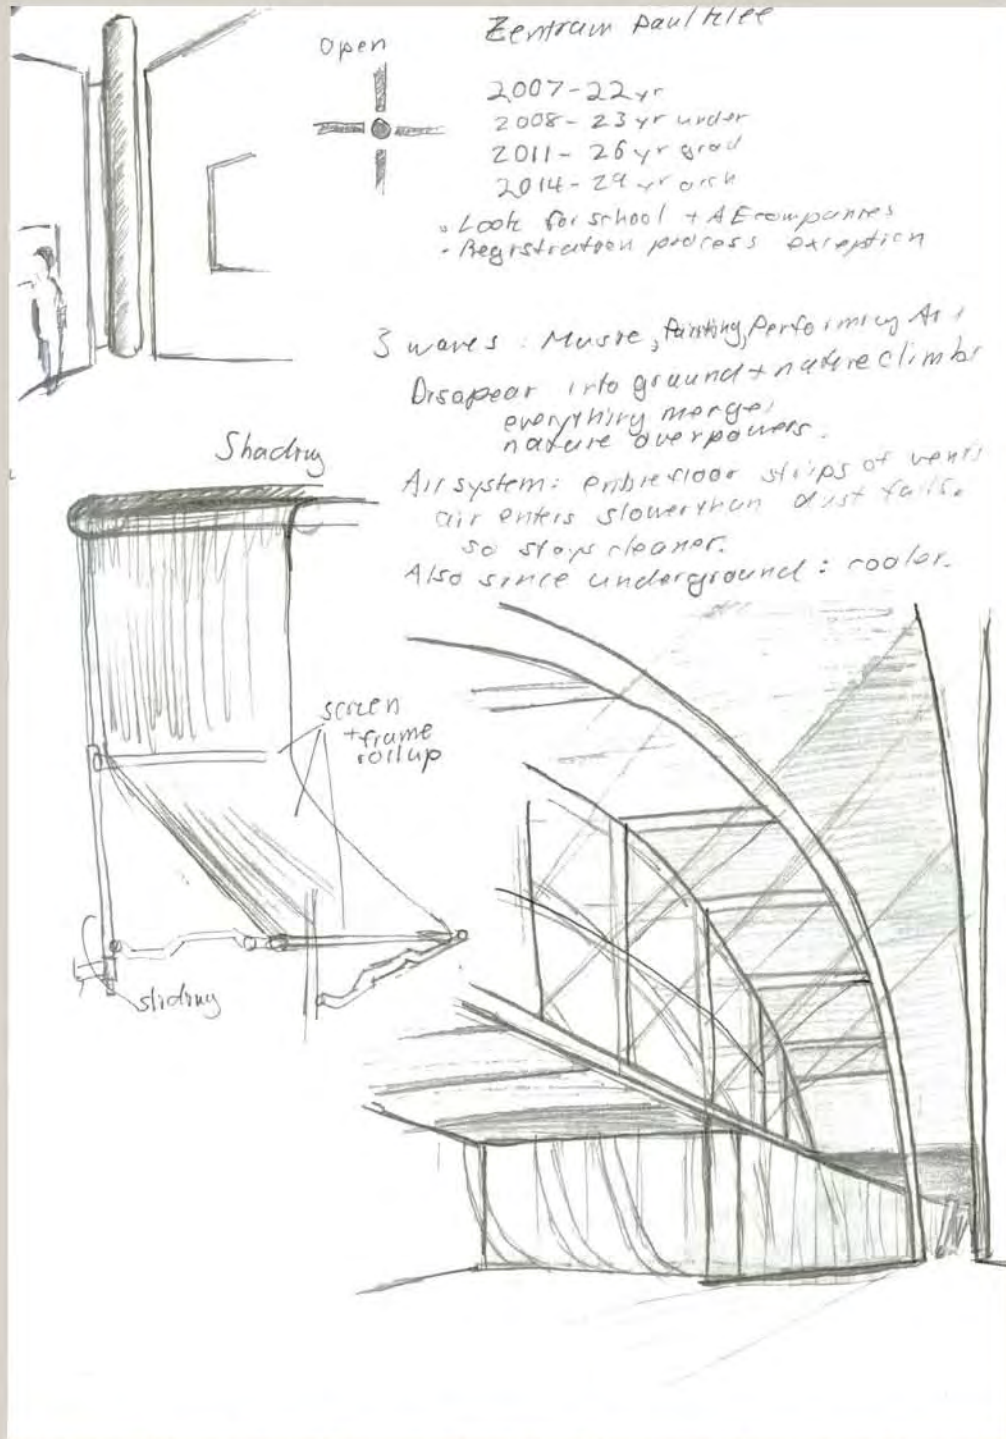 Open
Zentrum Paul Klee
2007-22yr
2008-23yr under
2011-26yr grad
2014-29yr arch
Look for school + AE companies
- Registration process exception
3 waves: Music, Painting, Performing Ar
Disapear into ground + nature climbs
everything merges
nature overpowers.
Air system: entire floor strips of vents
air enters slower than dust falls.
so stays cleaner.
Also since underground: cooler.
Shading
screen
+frame
rollup
sliding